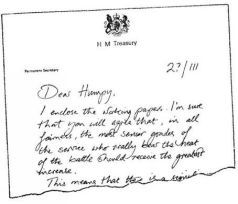 H M Treasury
Permanent Secretary
27/III
Dear Humpy,
I enclose the working paper. I'm sure
that you will agree that, in all
fairness, the most senior grades of
the service who really bear the heat
of the battle should receive the greatest
increase.
This means that there is a